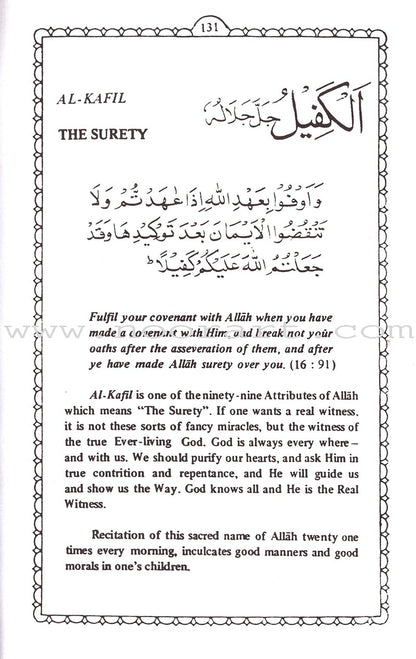 131
AL-KAFIL
اَلْكَفِيْلُ جَلَّ جَلَالُهُ
THE SURETY
وَاَوْفُوْا بِعَهْدِ اللّٰهِ اِذَا عٰهَدْتُّمْ وَلَا
تَنْقُضُوا الْاَيْمَانَ بَعْدَ تَوْكِيْدِهَا وَقَدْ
جَعَلْتُمُ اللّٰهَ عَلَيْكُمْ كَفِيْلًا ؕ
Fulfil your covenant with Allāh when you have
made a covenant with Him, and break not your
oaths after the asseveration of them, and after
ye have made Allāh surety over you. (16 : 91)
Al-Kafil is one of the ninety-nine Attributes of Allāh
which means "The Surety". If one wants a real witness,
it is not these sorts of fancy miracles, but the witness of
the true Ever-living God. God is always every where –
and with us. We should purify our hearts, and ask Him in
true contrition and repentance, and He will guide us
and show us the Way. God knows all and He is the Real
Witness.
Recitation of this sacred name of Allāh twenty one
times every morning, inculcates good manners and good
morals in one's children.